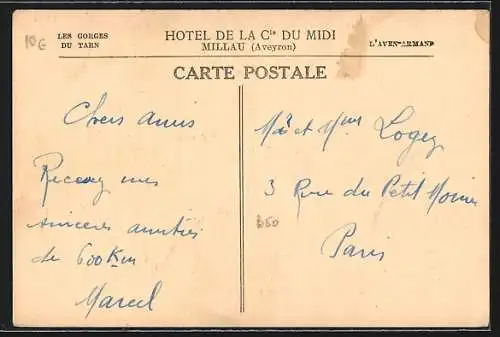 10E
LES GORGES
DU TARN
HOTEL DE LA Cie DU MIDI
MILLAU (Aveyron)
L'AVEN-ARMAND
CARTE POSTALE
Chers amis
Recevez mes
sincères amitiés
de 600 Km
Marcel
Mr et Mme Logez
3 Rue du Petit Moine
Paris